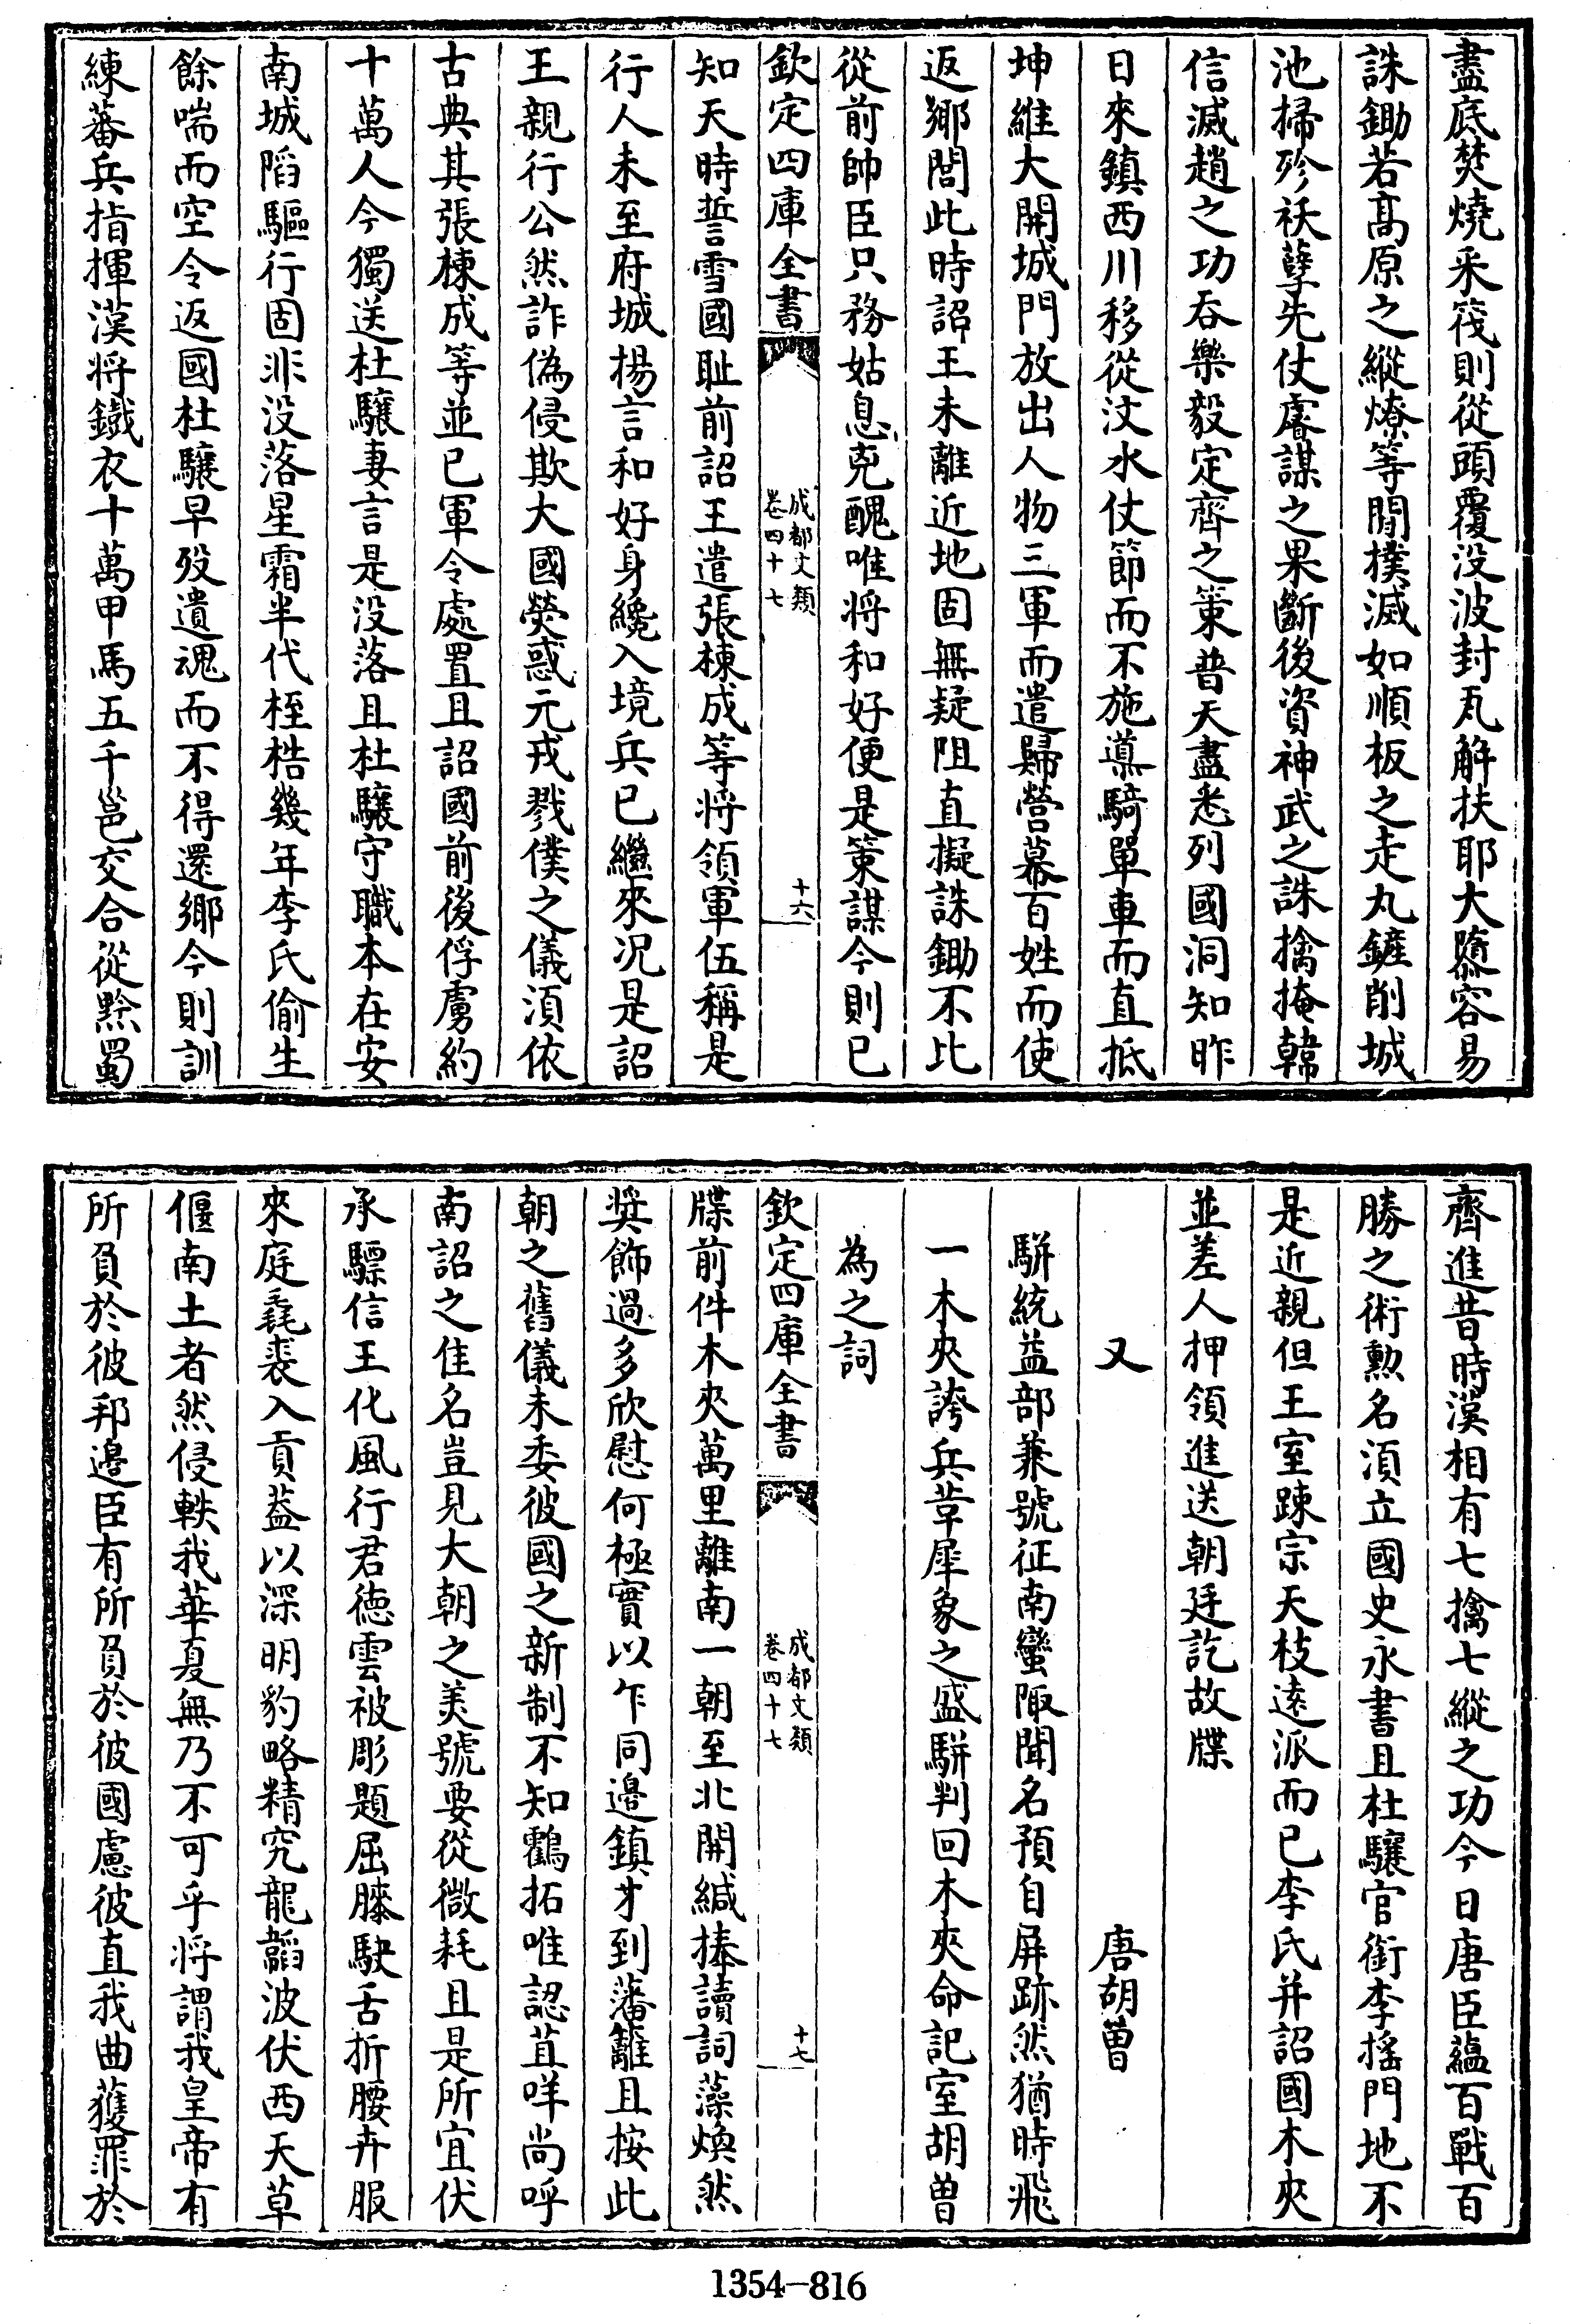 盡底焚燒采筏則從頭覆没波封瓦解扶耶大隳容易
誅鋤若髙原之縱燎等閒撲滅如順板之走丸鏟削城
池掃殄祅孽先仗睿謀之果斷後資神武之誅擒掩韓
信滅趙之功吞樂毅定齊之策普天盡悉列國洞知昨
日來鎮西川移從汶水仗節而不施導騎單車而直抵
坤維大開城門放出人物三軍而遣歸營幕百姓而使
返鄉閭此時詔王未離近地固無疑阻直擬誅鋤不比
從前帥臣只務姑息兇醜唯将和好便是策謀今則已
欽定四庫全書
成都文類
卷四十七
十六
知天時誓雪國耻前詔王遣張棟成等将領軍伍稱是
行人未至府城揚言和好身纔入境兵已繼來况是詔
王親行公然詐偽侵欺大國熒惑元戎戮僕之儀湏依
古典其張棟成等並已軍令處置且詔國前後俘虜約
十萬人今獨送杜驤妻言是没落且杜驤守職本在安
南城䧟驅行固非没落星霜半代桎梏幾年李氏偷生
餘喘而空令返國杜驤早殁遺魂而不得還鄉今則訓
練蕃兵指揮漢将鐵衣十萬甲馬五千邕交合從黔蜀
齊進昔時漢相有七擒七縱之功今日唐臣藴百戰百
勝之術勲名湏立國史永書且杜驤官銜李摇門地不
是近親但王室踈宗天枝逺派而已李氏并詔國木夾
並差人押領進送朝廷訖故牒
又 唐胡曽
駢統益部兼號征南蠻陬聞名預自屏跡然猶時飛
一木夾誇兵革犀象之盛駢判回木夾命記室胡曽
為之詞
欽定四庫全書
成都文類
卷四十七
十七
牒前件木夾萬里離南一朝至北開緘捧讀詞藻煥然
奬飾過多欣慰何極實以乍同邊鎮才到藩籬且按此
朝之舊儀未委彼國之新制不知鸛拓唯認苴咩尚呼
南詔之佳名豈見大朝之美號要從微耗且是所宜伏
承驃信王化風行君徳雲被彫題屈膝駃舌折腰卉服
來庭毳裘入貢葢以深明豹略精究龍韜波伏西天草
偃南土者然侵軼我華夏無乃不可乎将謂我皇帝有
所負於彼邦邊臣有所負於彼國慮彼直我曲獲罪於
1354-816